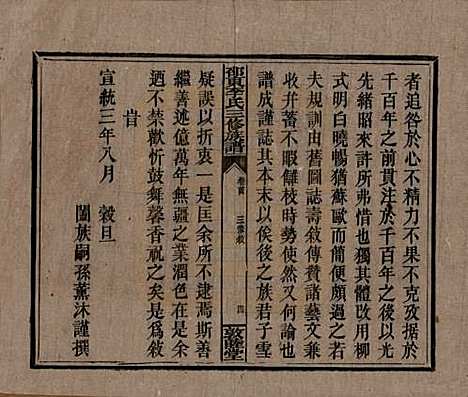 者追咎於心不精力不果不克攷據於
千百年之前貫注於千百年之後以光
先緒昭來許所弗惜也其體改用柳
式明白曉暢猶蘇歐而簡便頗過之若
夫規訓由舊圖誌壽敘傳贊諸藝文兼
收并蓄不暇讎枝時勢使然又何論也
譜成謹誌其本末以俟後之族君子雪
邵東李氏三修族譜
卷首
三修敘
四
敦睦堂
疑誤以折衷一是匡余所不逮焉斯善
繼善述億萬年無疆之業潤色在是余
廼不禁歡忻鼓舞馨香祝之矣是爲敘
旹
宣統三年八月 穀旦
闔族嗣孫薰沐謹撰